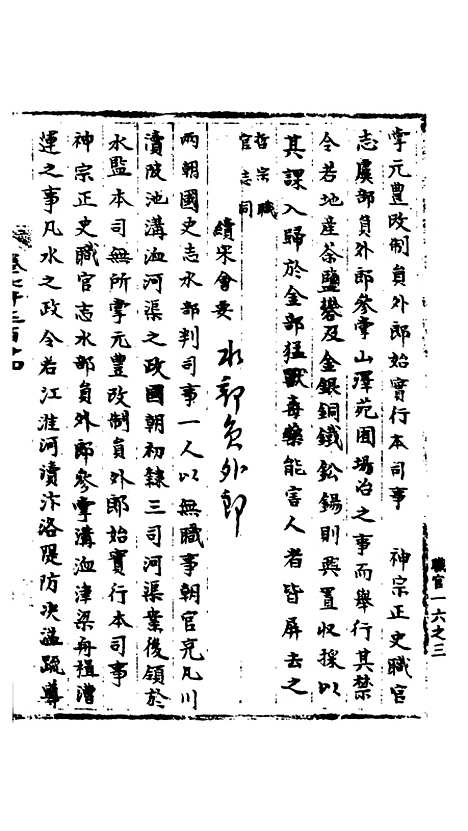 職官一六之三
掌元豐改制員外郎始實行本司事　神宗正史職官
志虞部員外郎參掌山澤苑囿場冶之事而舉行其禁
令若地產茶鹽礬及金銀銅鐵鉛錫則興置收採以
其課入歸於金部猛獸毒藥能害人者皆屏去之
哲宗職
官志同
續宋會要　水部員外郎
兩朝國史志水部判司事一人以無職事朝官充凡川
瀆陂池溝洫河渠之政國朝初隸三司河渠案後領於
水監本司無所掌元豐改制員外郎始實行本司事
神宗正史職官志水部員外郎參掌溝洫津梁舟楫漕
運之事凡水之政令若江淮河瀆汴洛隄防決溢疏導
卷七千三百十四